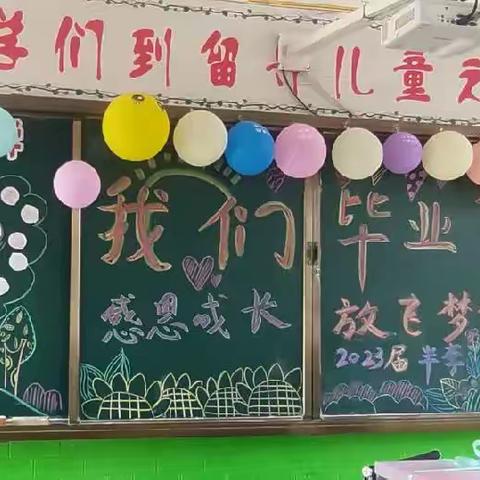 学们到留守儿童之
我们毕业
感恩成长
放飞梦
2023届